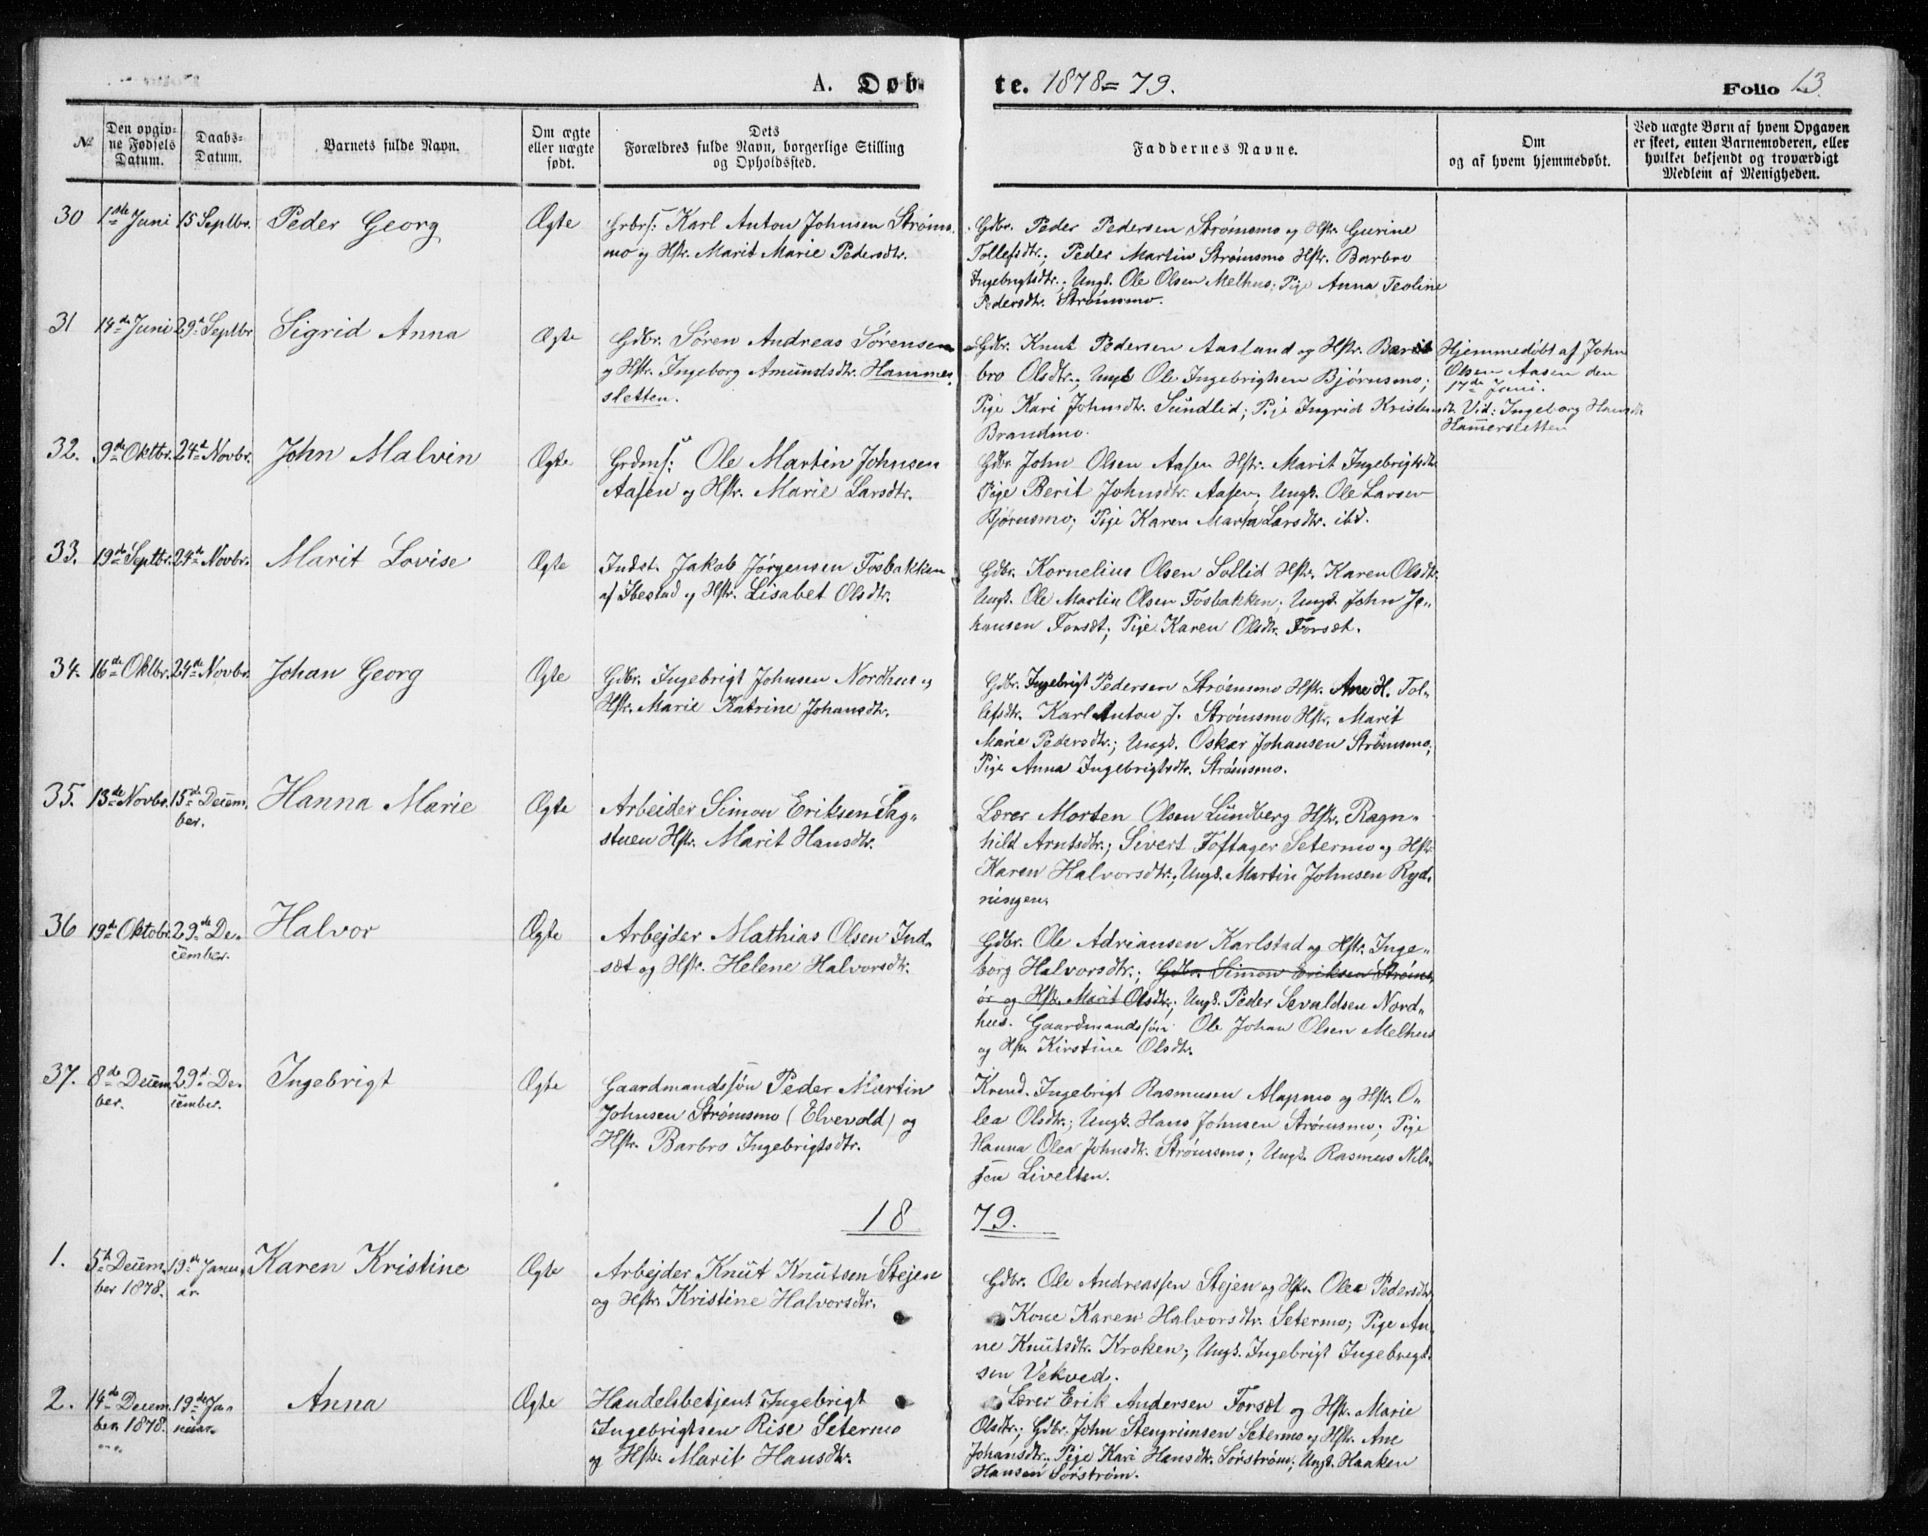 A. Døbte. 1878=79.
Folio 13.
№
Den opgiv-
ne Fødsels
Datum.
Daabs-
Datum.
Barnets fulde Navn.
Om ægte
eller uægte
født.
Dets
Forældres fulde Navn, borgerlige Stilling
og Opholdssted.
Faddernes Navne.
Om
og af hvem hjemmedøbt.
Ved uægte Børn af hvem Opgaven
er skeet, enten Barnemoderen, eller
hvilket bekjendt og troværdigt
Medlem af Menigheden.
30
1ste Juni
15 Septbr.
Peder Georg
Ægte
Grbrs: Karl Anton Johnsen Strøms-
mo og Hstr. Marit Marie Pedersdtr.
Gdbr. Peder Pedersen Strømsmo og Hstr. Gurine
Tollefsdtr.; Peder Martin Strømsmo Hstr. Barbro
Ingebrigtsdtr.; Ungk. Ole Olsen Melhus; Pige Anna Teoline
Pedersdtr. Strømsmo.
31
14de Juni
29d Septbr
Sigrid Anna
Ægte
Gdbr. Søren Andreas Sørensen
og Hstr. Ingeborg Amundsdtr. Hammer-
sletten.
Gdbr. Knut Pedersen Aasland og Hstr. Barbro
bro Olsdtr.; Ungk Ole Ingebrigtsen Bjørnsmo;
Pige Kari Johnsdtr. Sundlid; Pige Ingrid Kristensdtr.
Brandmo.
Hjemmedøbt af John
Olsen Aasen den
17de Juni.
Vid: Ingeborg Hansdtr
Hammersletten
32.
9de Oktbr.
24d Novbr.
John Malvin
Ægte
Grdms: Ole Martin Johnsen
Aasen og Hstr. Marie Larsdtr.
Gdbr John Olsen Aasen Hstr. Marit Ingebrigtsdtr
Pige Berit Johnsdtr. Aasen; Ungk. Ole Larsen
Bjørnsmo; Pige Karen Marta Larsdtr. ibd.
33.
19de Septbr.
24de Novbr.
Marit Lovise
Ægte
Indst. Jakob Jörgensen Fosbakken
af Ibestad og Hstr. Lisabet Olsdtr.
Gdbr. Kornelius Olsen Sollid Hstr. Karen Olsdtr.
Ungk. Ole Martin Olsen Fosbakken; Ungk. John Jo-
hansen Forsæt; Pige Karen Olsdtr. Forsæt.
34.
16de Oktbr.
24de Novbr.
Johan Georg
Ægte
Gdbr. Ingebrigt Johnsen Nordhus og
Hstr. Marie Katrine Johansdtr.
Gdbr. Ingebrigt Pedersen Strømsmo Hstr. Ane H. Tol-
lefsdtr. Karl Anton J. Strømsmo Hstr. Marit
Marie Pedersdtr.; Ungk. Oskar Johansen Strømsmo;
Pige Anna Ingebrigtsdtr. Strømsmo.
35.
13de Novbr.
15de Decem-
ber.
Hanna Marie
Ægte
Arbeider Simon Eriksen Sag-
stuen Hstr. Marit Hansdtr.
Lærer Morten Olsen Lundberg Hstr. Ragn-
hild Arntsdtr.; Sivert Foftager Setermo og Hstr
Karen Halvorsdtr.; Ungk. Martin Johnsen Ryd-
ningen.
36
19de Oktobr.
29de De-
cember.
Halvor
Ægte
Arbejder Mathias Olsen Ind-
sæt og Hstr. Helene Halvorsdtr.
Gdbr. Ole Adriansen Karlstad og Hstr. Inge-
borg Halvorsdtr.; Gdbr Simon Eriksen Strøms-
ör og Hstr. Marit Olsdtr.; Ungk. Peder Sevaldsen Nord-
hus. Gaardmandssøn Ole Johan Olsen Melhus
og Hstr. Kirstine Olsdtr.
37.
8de Decem-
ber.
29d De-
cember.
Ingebrigt
Ægte
Gaardmandssøn Peder Martin
Johnsen Strømsmo (Elvevold) og
Hstr. Barbro Ingebrigtsdtr.
Kvend. Ingebrigt Rasmusen Alapmo og Hstr. O-
lea Olsdtr.; Ungk. Hans Johnsen Strømsmo; Pige
Hanna Olea Johnsdtr. Strømsmo; Ungk. Rasmus Nils-
sen Livelten.
18 79.
1.
5t Decem-
ber 1878.
19de Janu-
ar
Karen Kristine
Ægte
Arbejder Knut Knutsen Stejen
og Hstr. Kristine Halvorsdtr.
Gdbr. Ole Andreassen Stejen og Hstr. Olea Pedersdtr.
Kone Karen Halvorsdtr. Setermo; Pige An-
ne Knutsdtr. Kroken; Ungk. Ingebrigt Ingebrigt-
sen Vekved.
2.
14de Decem-
ber 1878.
19de Ja-
nuar
Anna
Ægte
Handelsbetjent Ingebrigt
Ingebrigtsen Rise Setermo
og Hstr. Marit Hansdtr.
Lærer Erik Andersen Forsæt og Hstr. Marie
Olsdtr.; Gdbr. John Stengrimsen Setermo og Hstr. Ane
Johansdtr.; Pige Kari Hansdtr. Sørstrøm; Ungk. Haaken
Hansen Sørstrøm.